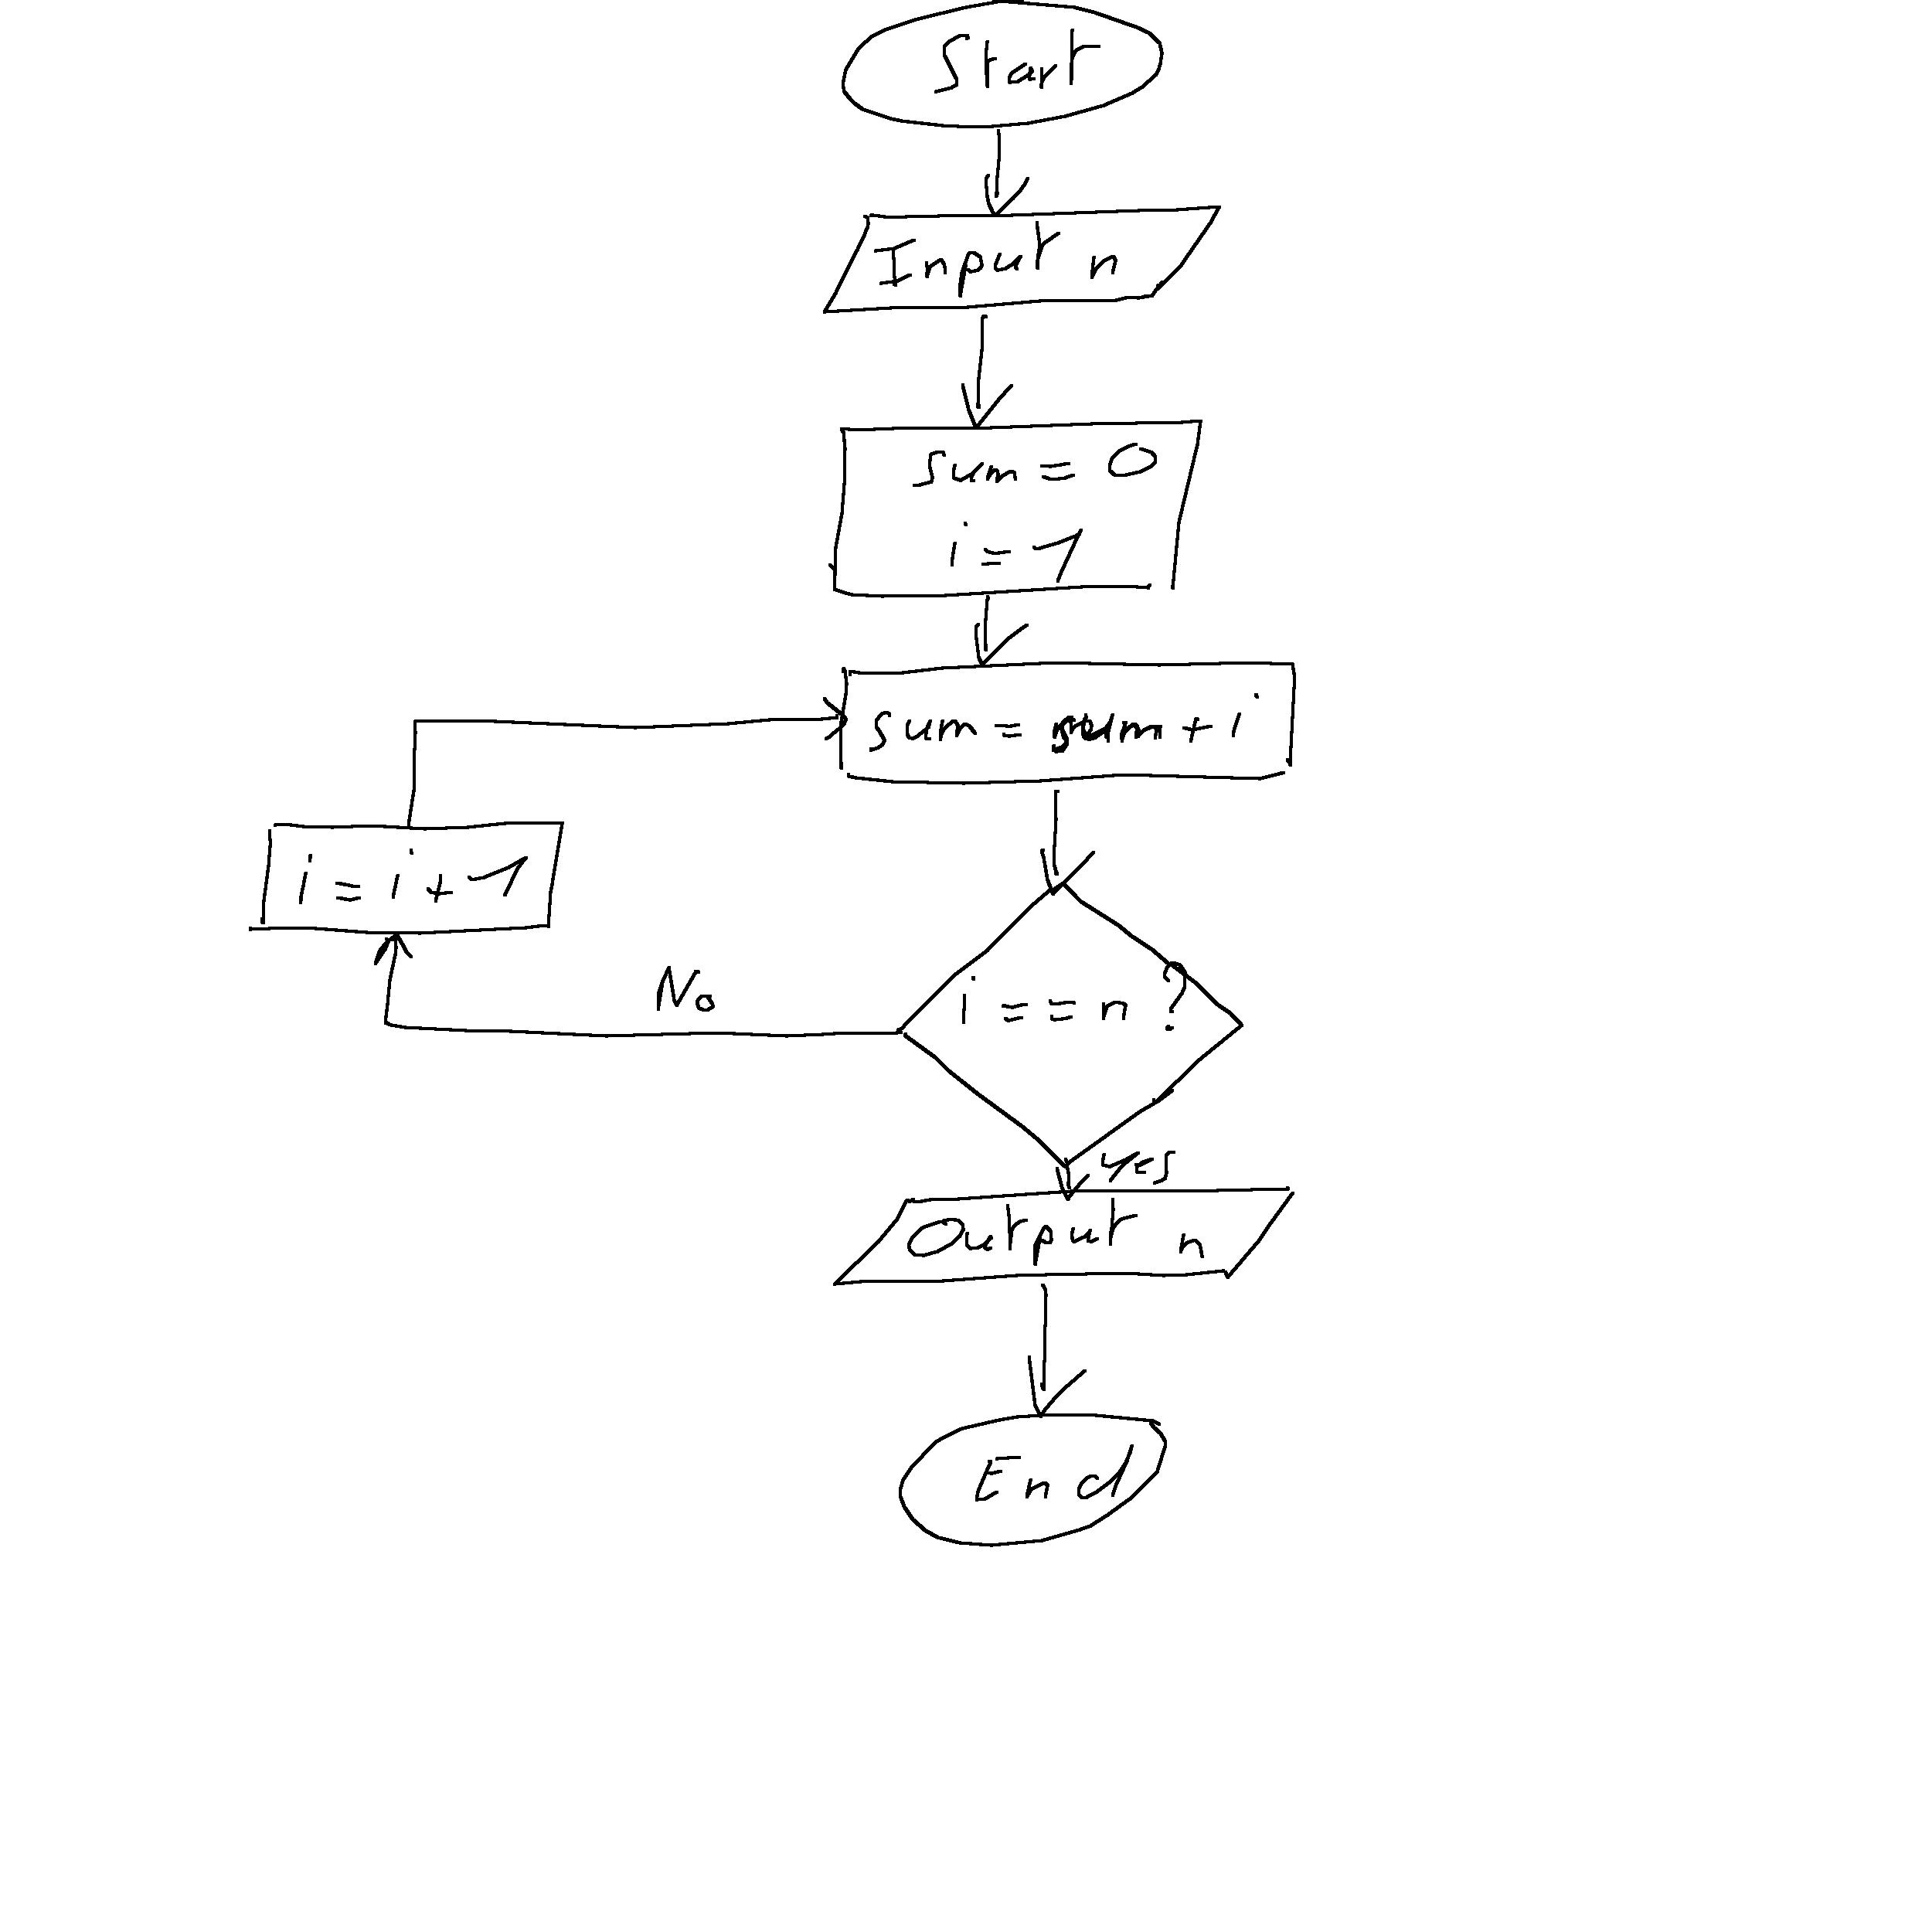 Start
Input n
sum = 0
i = 1
sum = sum + i
i = i + 1
No
i == n ?
Yes
Output n
End